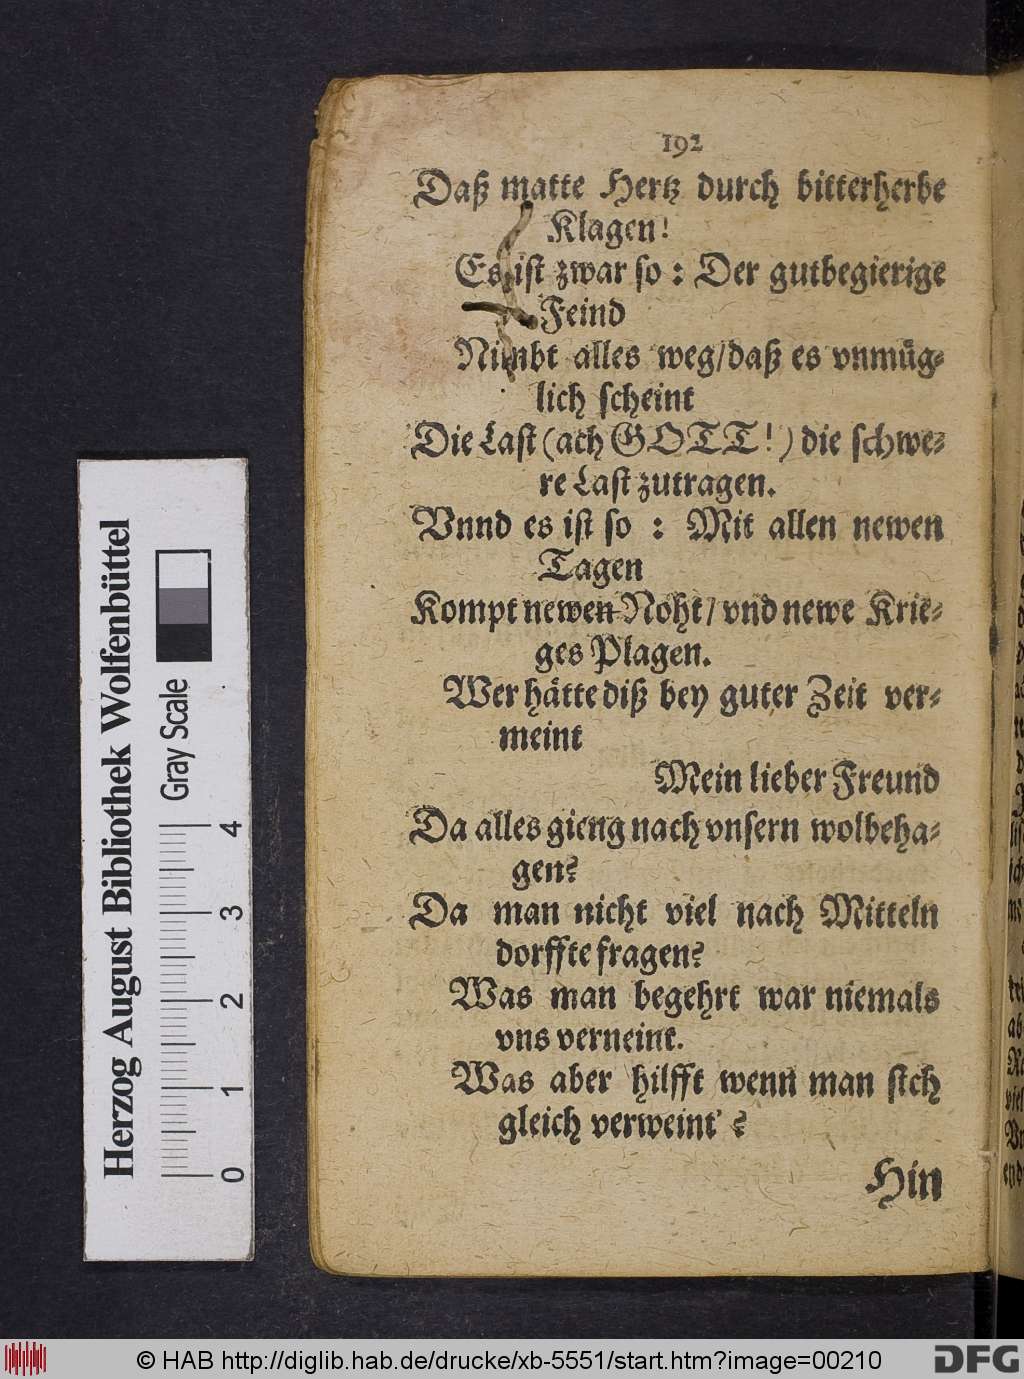 192
Daß matte Hertz durch bitterherbe
Klagen!
Es ist zwar so: Der gutbegierige
Feind
Nimbt alles weg/daß es vnmüg-
lich scheint
Die Last (ach GOTT!) die schwe-
re Last zutragen.
Vnnd es ist so: Mit allen newen
Tagen
Kompt newen Noht/ vnd newe Krie-
ges Plagen.
Wer hätte diß bey guter Zeit ver-
meint
Mein lieber Freund
Da alles gieng nach vnsern wolbeha-
gen?
Da man nicht viel nach Mitteln
dorffte fragen?
Was man begehrt war niemals
vns verneint.
Was aber hilfft wenn man sich
gleich verweint'?
Hin
Herzog August Bibliothek Wolfenbüttel
Gray Scale
0 1 2 3 4
© HAB http://diglib.hab.de/drucke/xb-5551/start.htm?image=00210
DFG